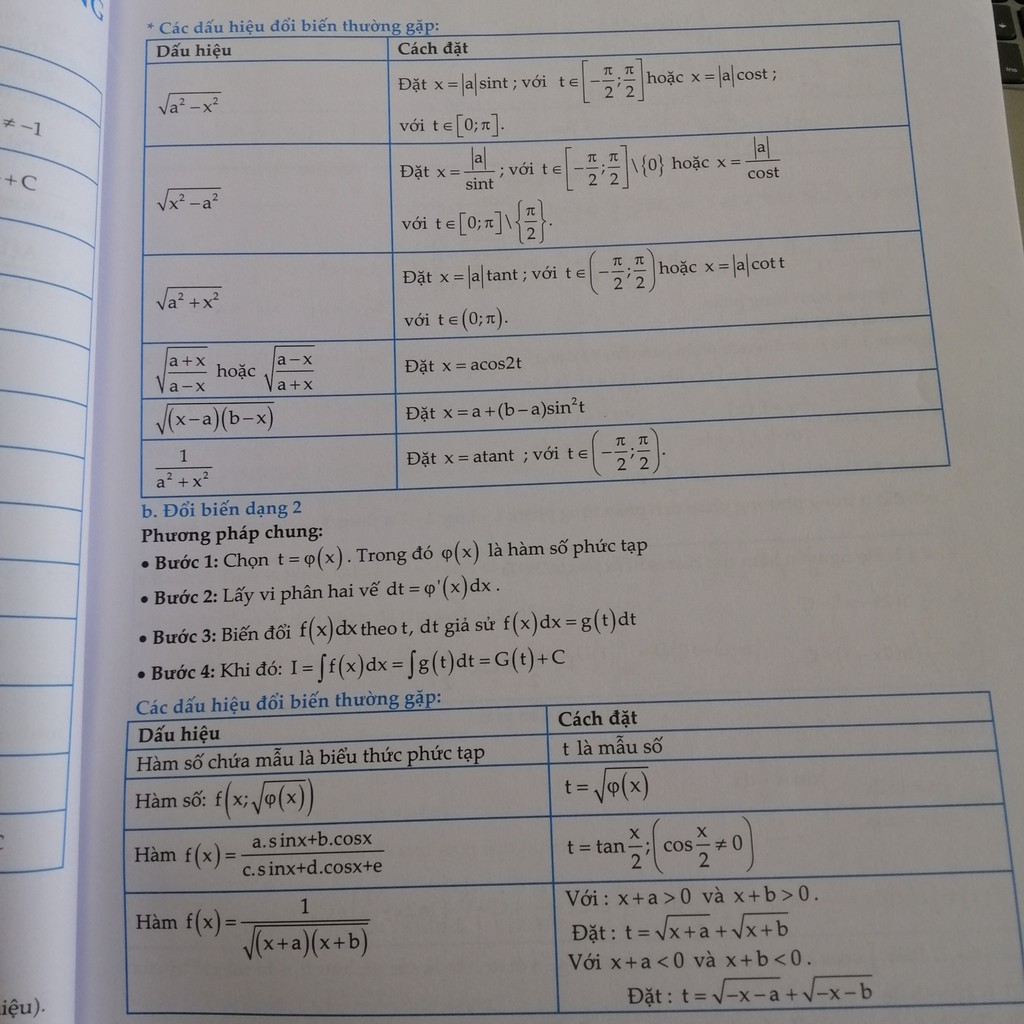 NG
≠ −1
+ C
iệu).
* Các dấu hiệu đổi biến thường gặp:
Dấu hiệu | Cách đặt
√(a² − x²) | Đặt x = |a| sint ; với t ∈ [−π/2; π/2] hoặc x = |a| cost ;
với t ∈ [0; π].
√(x² − a²) | Đặt x = |a|/sint ; với t ∈ [−π/2; π/2] \ {0} hoặc x = |a|/cost
với t ∈ [0; π] \ {π/2}.
√(a² + x²) | Đặt x = |a| tant ; với t ∈ (−π/2; π/2) hoặc x = |a| cot t
với t ∈ (0; π).
√((a+x)/(a−x)) hoặc √((a−x)/(a+x)) | Đặt x = acos2t
√((x−a)(b−x)) | Đặt x = a + (b−a)sin²t
1/(a² + x²) | Đặt x = atant ; với t ∈ (−π/2; π/2).
b. Đổi biến dạng 2
Phương pháp chung:
• Bước 1: Chọn t = φ(x). Trong đó φ(x) là hàm số phức tạp
• Bước 2: Lấy vi phân hai vế dt = φ'(x)dx .
• Bước 3: Biến đổi f(x)dx theo t, dt giả sử f(x)dx = g(t)dt
• Bước 4: Khi đó: I = ∫f(x)dx = ∫g(t)dt = G(t) + C
Các dấu hiệu đổi biến thường gặp:
Dấu hiệu | Cách đặt
Hàm số chứa mẫu là biểu thức phức tạp | t là mẫu số
Hàm số: f(x; √φ(x)) | t = √φ(x)
Hàm f(x) = (a.sinx+b.cosx)/(c.sinx+d.cosx+e) | t = tan x/2; (cos x/2 ≠ 0)
Hàm f(x) = 1/√((x+a)(x+b)) | Với : x + a > 0 và x + b > 0 .
Đặt : t = √(x+a) + √(x+b)
Với x + a < 0 và x + b < 0 .
Đặt : t = √(−x−a) + √(−x−b)